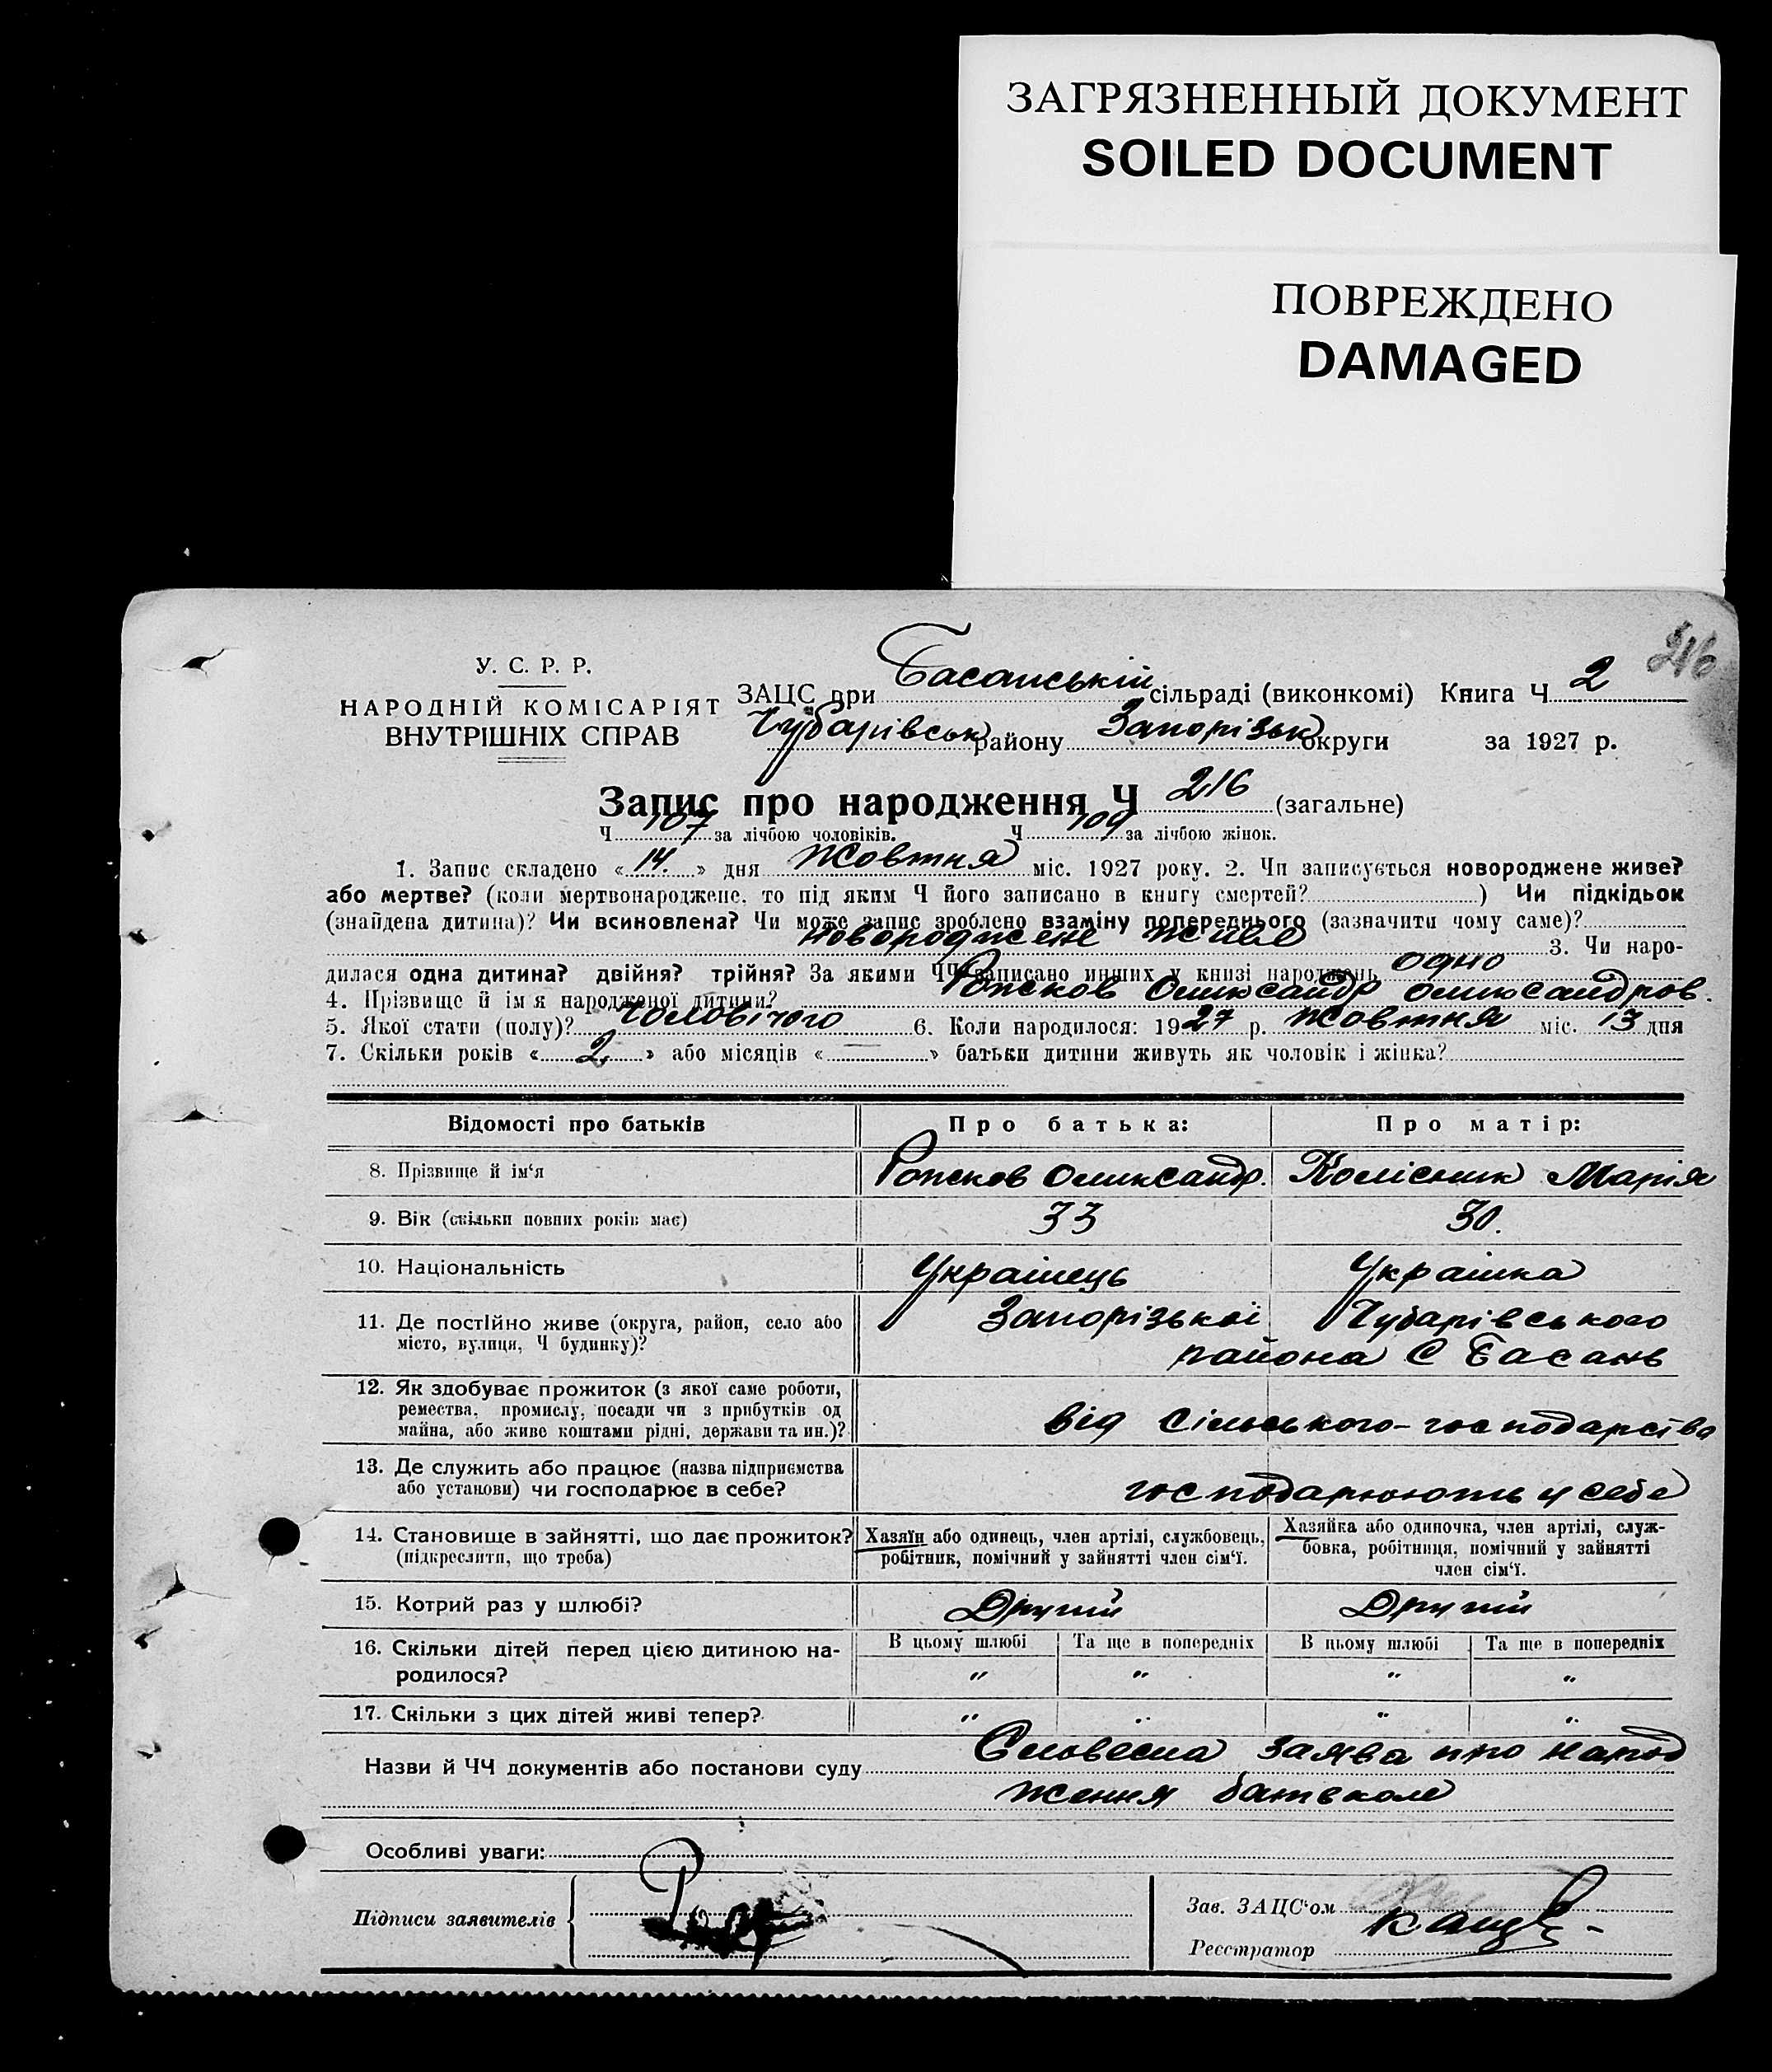 ЗАГРЯЗНЕННЫЙ ДОКУМЕНТ
SOILED DOCUMENT
ПОВРЕЖДЕНО
DAMAGED
216
У. С. Р. Р.
НАРОДНІЙ КОМІСАРІЯТ
ВНУТРІШНІХ СПРАВ
ЗАЦС при Басанській сільраді (виконкомі) Книга Ч 2
Чубарівськ району Запорізьк округи за 1927 р.
Запис про народження Ч 216 (загальне)
Ч 107 за лічбою чоловіків. Ч 109 за лічбою жінок.
1. Запис складено «14.» дня Жовтня міс. 1927 року. 2. Чи записується новороджене живе?
або мертве? (коли мертвонароджене, то під яким Ч його записано в книгу смертей? ) Чи підкідьок
(знайдена дитина)? Чи всиновлена? Чи може запис зроблено взаміну попереднього (зазначити чому саме)?
новороджене живе 3. Чи наро-
дилася одна дитина? двійня? трійня? За якими ЧЧ записано инших у книзі народжень одно
4. Прізвище й ім'я народженої дитини? Олександр Олександров.
5. Якої стати (полу)? Чоловічого 6. Коли народилося: 1927 р. Жовтня міс. 13 дня
7. Скільки років «2» або місяців «—» батьки дитини живуть як чоловік і жінка?
Відомості про батьків Про батька: Про матір:
8. Прізвище й ім‘я Олександр. Колісник Марія
9. Вік (скільки повних років має) 33 30.
10. Національність Українець Українка
11. Де постійно живе (округа, район, село або Запорізькоі Чубарівського
місто, вулиця, Ч будинку)? района С Басань
12. Як здобуває прожиток (з якої саме роботи,
ремества, промислу, посади чи з прибутків од
майна, або живе коштами рідні, держави та ин.)? від сільського-господарства
13. Де служить або працює (назва підприємства
або установи) чи господарює в себе? господарюють у себе
14. Становище в зайнятті, що дає прожиток? Хазяїн або одинець, член артілі, службовець, Хазяйка або одиночка, член артілі, служ-
(підкреслити, що треба) робітник, помічний у зайнятті член сім‘ї. бовка, робітниця, помічний у зайнятті
член сім‘ї.
15. Котрий раз у шлюбі? Другий Другий
16. Скільки дітей перед цією дитиною на- В цьому шлюбі Та ще в попередніх В цьому шлюбі Та ще в попередніх
родилося? " " " "
17. Скільки з цих дітей живі тепер? " " " "
Назви й ЧЧ документів або постанови суду Словесна заява про народ
ження
Особливі уваги:
Підписи заявителів
Зав. ЗАЦС‘ом
Реєстратор